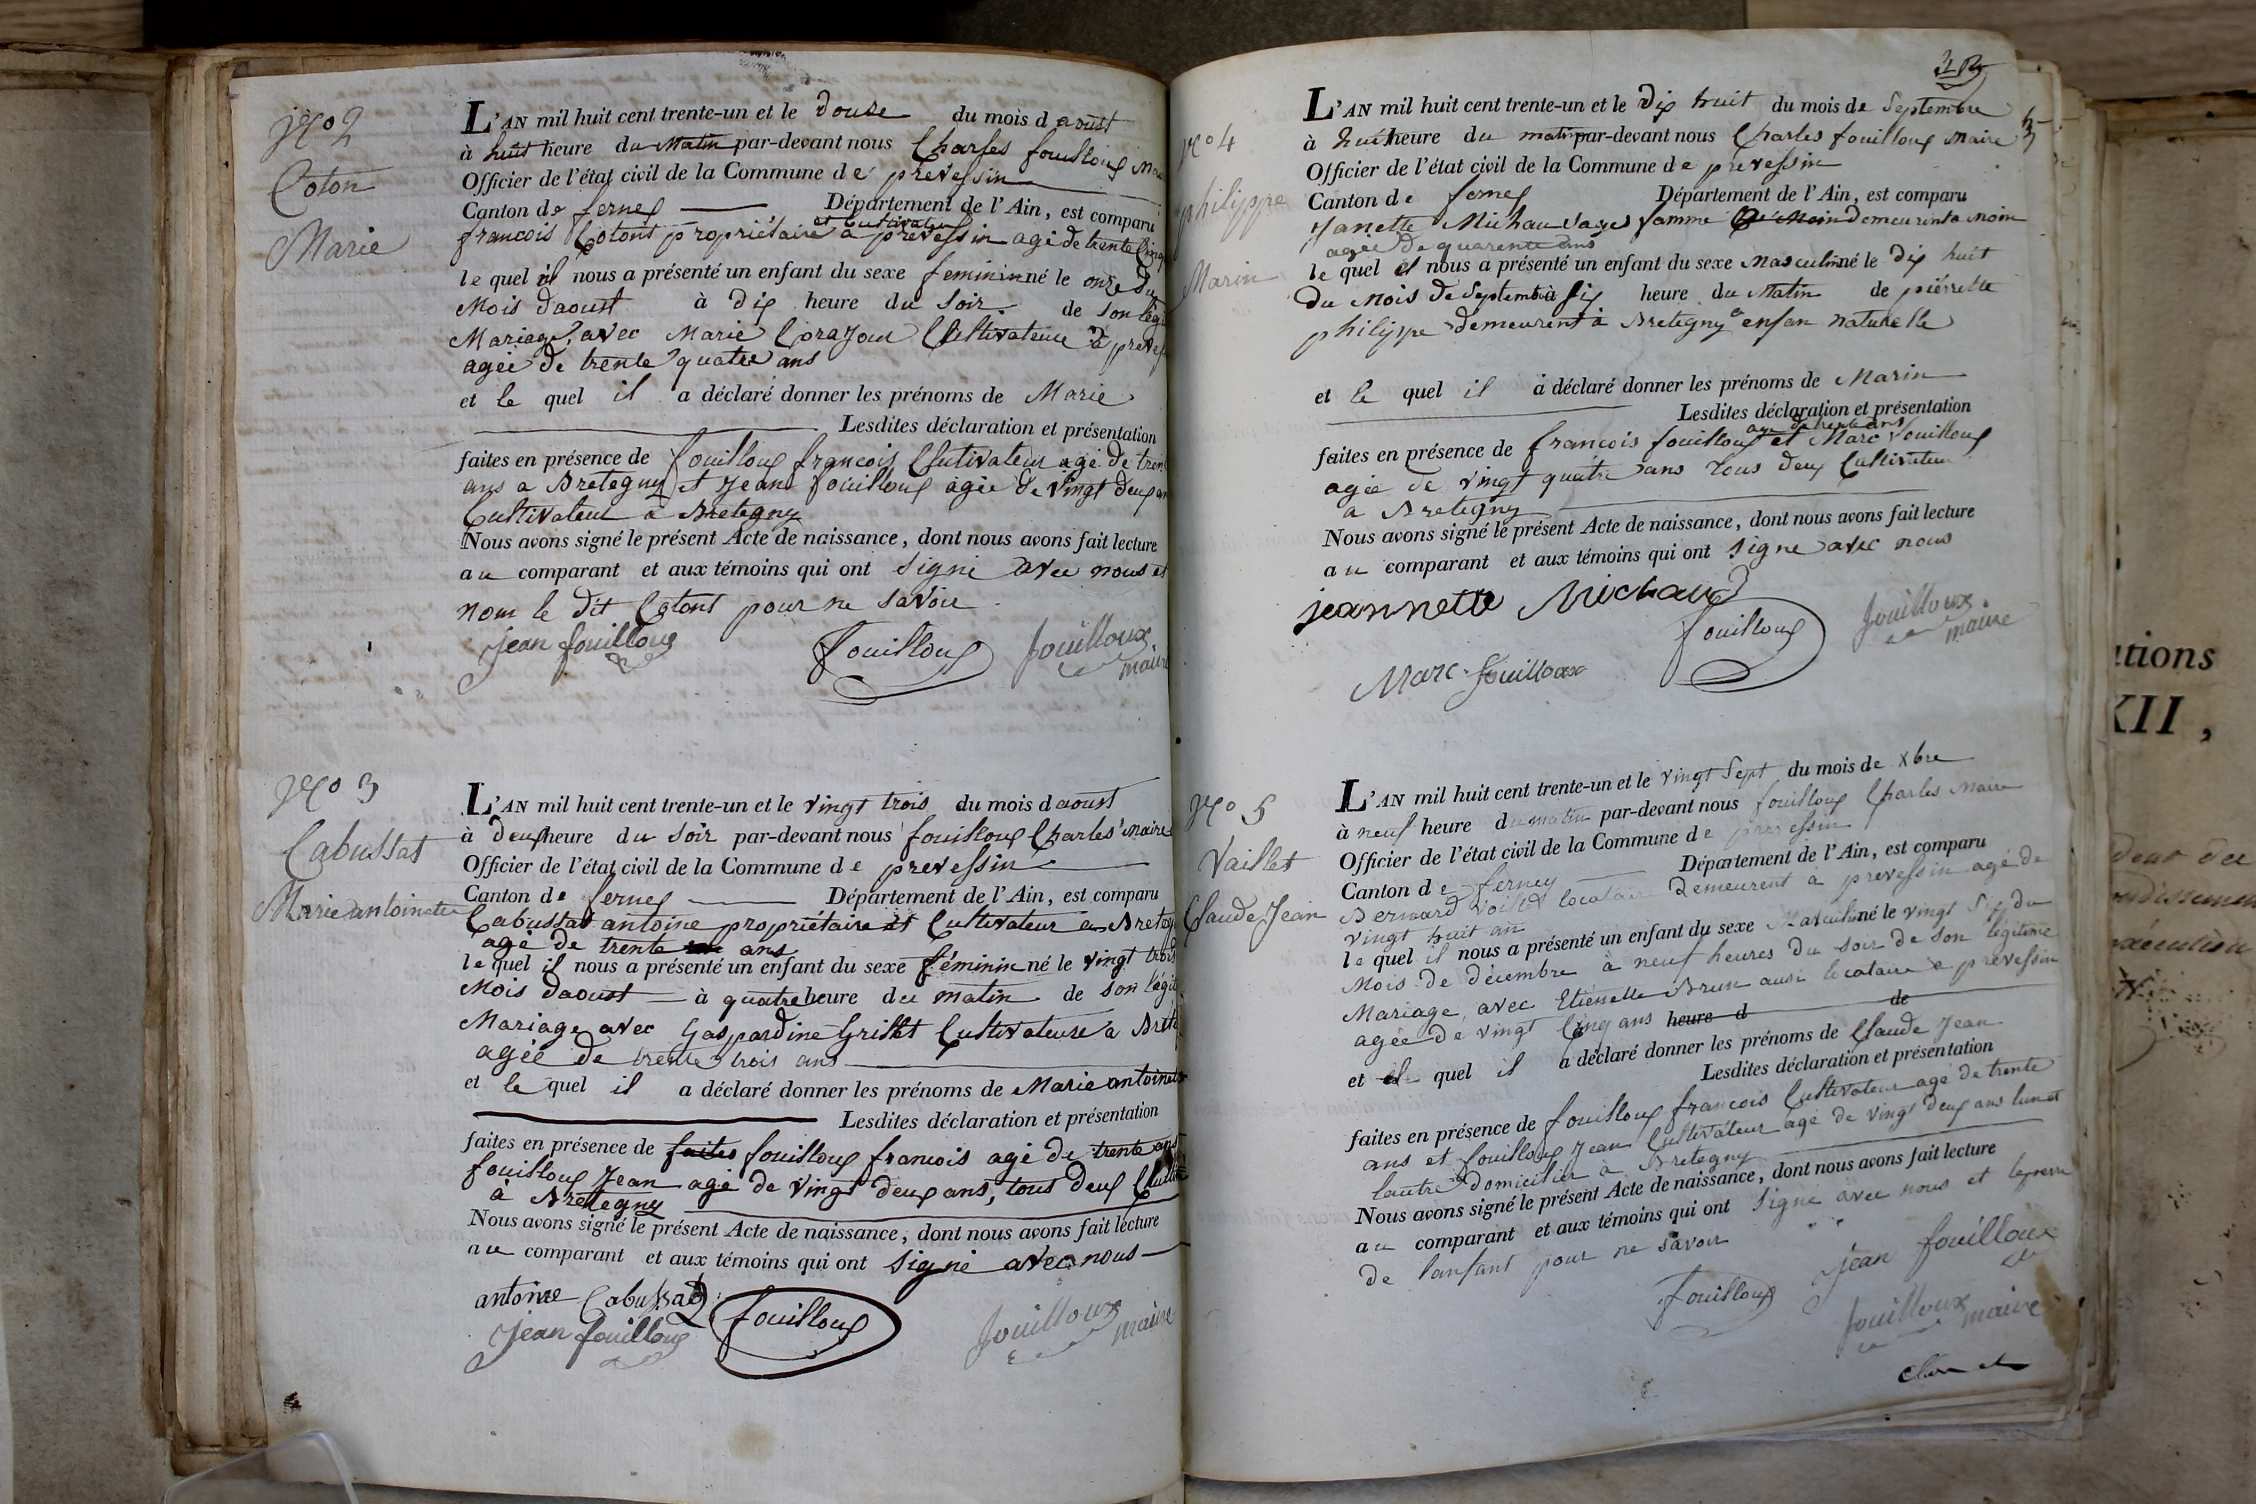 No 2
Coton
Marie
L'AN mil huit cent trente-un et le douse du mois d aoust
à huit heure du Matin par-devant nous Charles fouilloux
Officier de l'état civil de la Commune de prevessin
Canton de fernex Département de l'Ain, est comparu
et Cultivateur
francois Cotont propriétaire a prevessin agé de trente Cinq
le quel il nous a présenté un enfant du sexe feminin né le onze du
Mois daoust à dix heure du Soir de son légi
Mariage, avec Marie Corajoud Cultivateuse a prevess
agée de trente quatre ans
et le quel il a déclaré donner les prénoms de Marie
Lesdites déclaration et présentation
faites en présence de fouilloux francois Cultivateur agé de tren
ans a Bretegny et Jean fouilloux agée de vingt deux an
Cultivateur a Bretegny
Nous avons signé le présent Acte de naissance, dont nous avons fait lecture
au comparant et aux témoins qui ont signé avec nous et
nom le dit Cotont pour ne savoir
jean fouilloux fouilloux fouilloux
maire
No 3
Cabussat
Marie antoinette
L'AN mil huit cent trente-un et le vingt trois du mois d aoust
à deux heure du soir par-devant nous fouilloux Charles maire
Officier de l'état civil de la Commune de prevessin
Canton de fernex Département de l'Ain, est comparu
Cabussat antoine propriétaire et Cultivateur a Breteg
agé de trente ans
le quel il nous a présenté un enfant du sexe féminin né le vingt trois
Mois daoust à quatre heure du matin de son légit
Mariage avec Gaspardine Grillet Cultivateuse a Bret
agée de trente trois ans
et le quel il a déclaré donner les prénoms de Marie antoinette
Lesdites déclaration et présentation
faites en présence de faites fouilloux francois agé de trente ans
fouilloux Jean agé de vingt deux ans, tous deux Cultiv
à Bretegny
Nous avons signé le présent Acte de naissance, dont nous avons fait lecture
au comparant et aux témoins qui ont signé avec nous
antoine Cabussat fouilloux
jean fouilloux fouilloux maire
No 4
philippe
Marin
L'AN mil huit cent trente-un et le dix huit du mois de Septembre
à huit heure du matin par-devant nous Charles fouilloux Maire
Officier de l'état civil de la Commune de prevessin
Canton de fernex Département de l'Ain, est comparu
Janette Michau sage famme demeurent a moin
agée de quarente ans
le quel il nous a présenté un enfant du sexe Masculin né le dix huit
du Mois de Septembre à six heure du Matin de pierrette
philippe demeurent à Bretegny enfan naturelle
et le quel il a déclaré donner les prénoms de Marin
Lesdites déclaration et présentation
age de trente ans
faites en présence de francois fouilloux et Marc fouilloux
agée de vingt quatre ans tous deux Cultivateur
a Bretegny
Nous avons signé le présent Acte de naissance, dont nous avons fait lecture
au comparant et aux témoins qui ont signe avec nous
jeannette Michaud
fouilloux fouilloux
maire
Marc fouilloux
No 5
Vaillet
Claude Jean
L'AN mil huit cent trente-un et le vingt Sept du mois de xbre
à neuf heure du matin par-devant nous fouilloux Charles Maire
Officier de l'état civil de la Commune de prevessin
Canton de ferney Département de l'Ain, est comparu
Bernard locataire demeurent a prevessin agé de
vingt huit an
le quel il nous a présenté un enfant du sexe Masculin né le vingt six du
Mois de décembre à neuf heures du soir de son légitime
Mariage, avec Etienette Brun ausi locataire a prevessin
agée de vingt Cinq ans heure d de
et quel il a déclaré donner les prénoms de Claude Jean
Lesdites déclaration et présentation
faites en présence de fouilloux francois Cultivateur agé de trente
ans et fouilloux Jean Cultivateur agé de vingt deux ans lun et
lautre domicilier a Bretegny
Nous avons signé le présent Acte de naissance, dont nous avons fait lecture
au comparant et aux témoins qui ont signé avec nous et le perre
de lanfant pour ne savoir
fouilloux jean fouilloux
fouilloux maire
ations
XII,